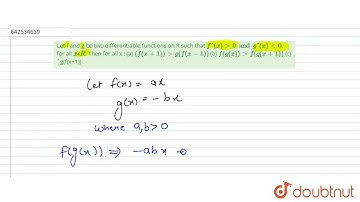 642534659
Let f and g be two differentiable functions on R such that f'(x) > 0 and g'(x) < 0,
for all x∈R. Then for all x : (a) (f(x + 1)) > g(f(x − 1)) (b) f(g(x)) > f(g(x + 1)) (c)
g(f(x+1))
Let f(x) = ax
g(x) = -bx
where a,b>0
f(g(x)) ⇒ -abx
doubtnut